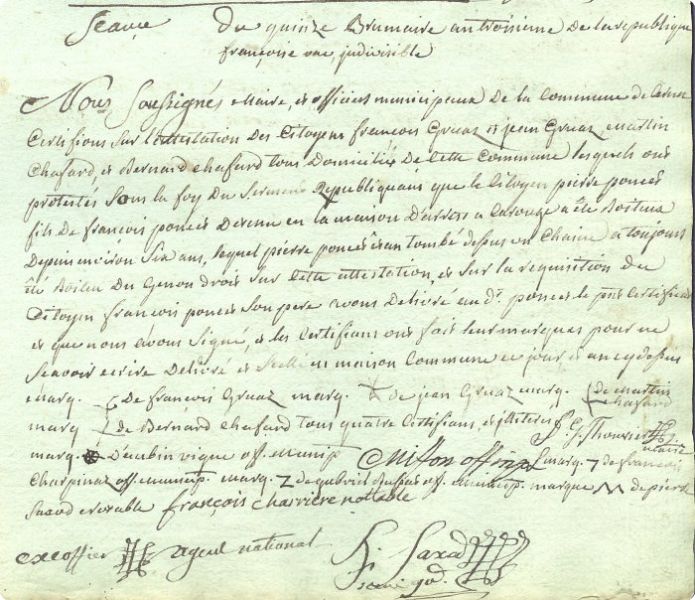 Seance du quinze Brumaire an troisieme de la republique
francoise une, indivisible
Nous Soussignés Maire, et officiers municipaux de la Commune de
Certifions sur l'attestation des Citoyens francois Gruaz et jean Gruaz, martin
Chafard, et Bernard chafard tous domiciliés de cette Commune lesquels ont
protestés sous la foy du serment Republiquain que le Citoyen pierre poncet
fils de francois poncet detenu en la maison d'arrost a Carouge a été Boiteux
Depuis environ six ans, lequel pierre poncet etan tombé depuis un Chaine a toujours
été Boiteu du Genou droit sur cette attestation et sur la requisition du
Citoyen francois poncet son pere avons delivré au dt. poncet le pnt Certificat
et que nous avons signé, et les Certifians ont fait leur marques pour ne
scavoir ecrire Delivré et scellé en maison Commune ce jour et an cy dessus
marq. de francois Gruaz marq. de jean Gruaz marq. de martin
chafard
marq de Bernard chafard tous quatre Certifians, et J. Thouvier
maire
marq. D'aubin vigne off. munip Miston off mpl marq. de francois
Charpinaz off. munip. marq. de gabriel off. munip. marque de pierre
notable francois charriere notable
ex officier agent national
J. Saxod